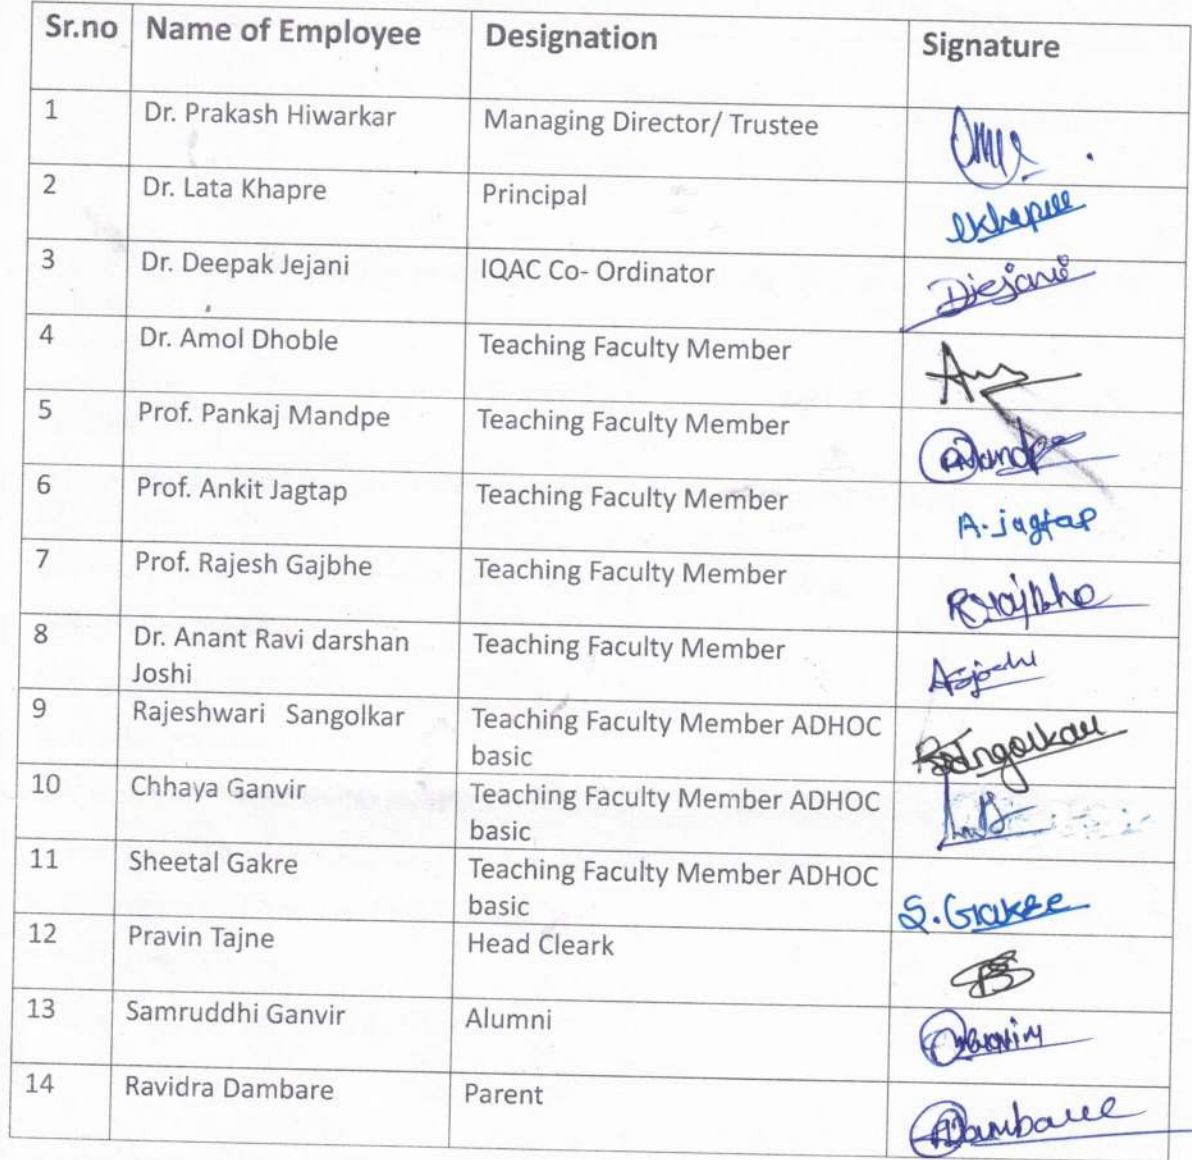 Sr.no Name of Employee Designation Signature
1 Dr. Prakash Hiwarkar Managing Director/ Trustee
2 Dr. Lata Khapre Principal lkhapre
3 Dr. Deepak Jejani IQAC Co- Ordinator Djejani
4 Dr. Amol Dhoble Teaching Faculty Member
5 Prof. Pankaj Mandpe Teaching Faculty Member
6 Prof. Ankit Jagtap Teaching Faculty Member A.jagtap
7 Prof. Rajesh Gajbhe Teaching Faculty Member
8 Dr. Anant Ravi darshan Teaching Faculty Member
Joshi
9 Rajeshwari Sangolkar Teaching Faculty Member ADHOC
basic
10 Chhaya Ganvir Teaching Faculty Member ADHOC
basic
11 Sheetal Gakre Teaching Faculty Member ADHOC
basic S.Gakre
12 Pravin Tajne Head Cleark
13 Samruddhi Ganvir Alumni
14 Ravidra Dambare Parent Dambare